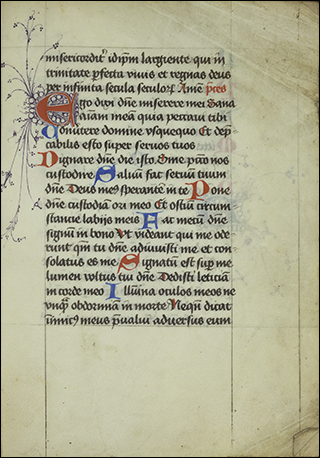 misericordit' idipm largiente qui in
trinitate pfecta vivis et regnas deus
per infinita secula seculoꝝ Amē pces
Ego dixi dn̄e miserere mei Sana
aīam meā quia peccavi tibi
Convertere domine usquequo Et dep
cabilis esto super servos tuos
Dignare dn̄e die isto Sine pctō nos
custodire Salvū fac servum tuum
dn̄e Deus meus sperante in te Pone
dn̄e custodiā ori meo Et ostiū circum
stantie labijs meis Fac mecū dn̄e
signū in bono Ut videant qui me ode
runt qm̄ tu dn̄e adiuvisti me et con
solatus es me Signatū est sup me
lumen vultus tui dn̄e Dedisti leticiā
in corde meo Illūina oculos meos ne
unqꝫ obdormiā in morte Nequn̄ dicat
inimicꝰ meus p̄valui adversus eum